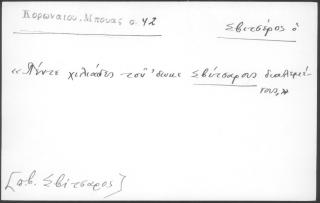 Κορωναίου, Μπούας σ. 42
Σβιτσέρος ὁ
« Πέντε χιλιάδες τοῦ 'δωκε Σβίτσαρους διαλεμέ-
νους, »
[πβ. Σβίτσαρος]